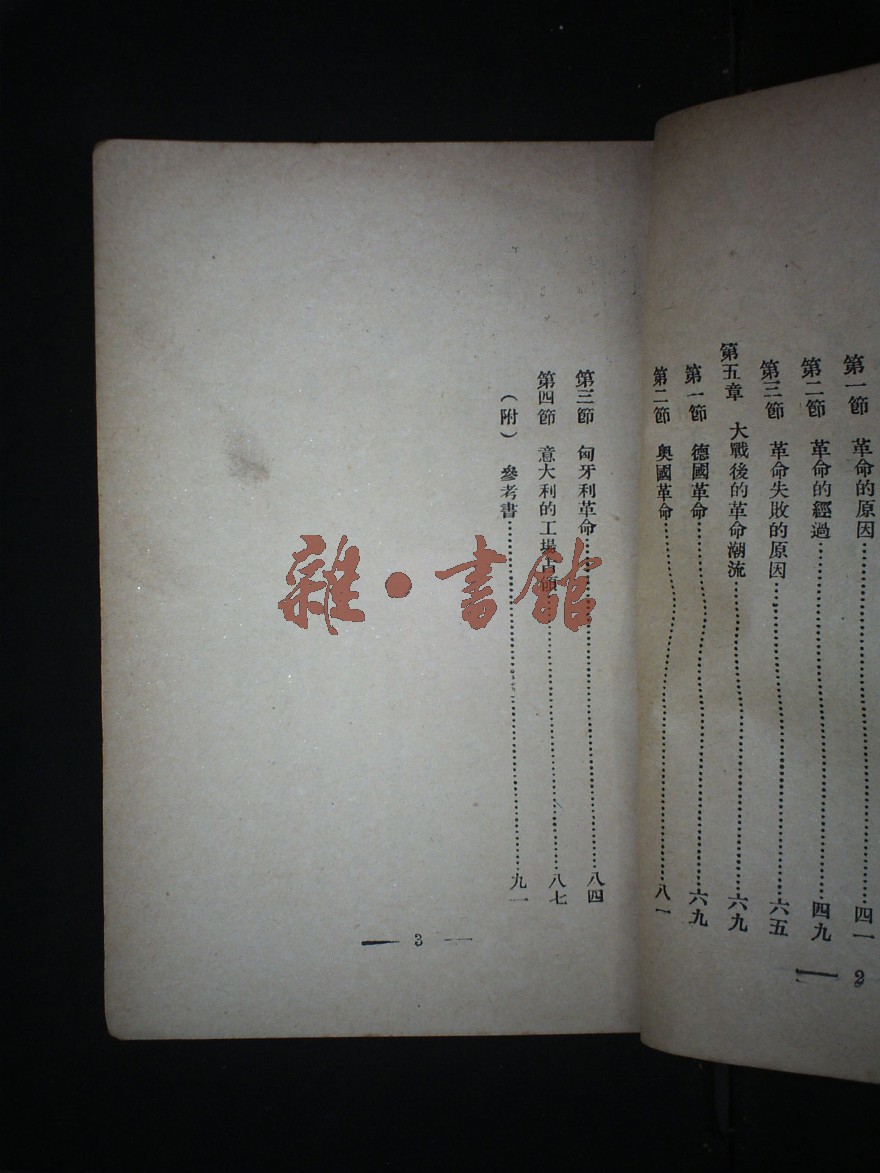 第一節 革命的原因……四一
第二節 革命的經過……四九
第三節 革命失敗的原因……六五
第五章 大戰後的革命潮流……六九
第一節 德國革命……六九
第二節 奧國革命……八一
2
第三節 匈牙利革命……八四
第四節 意大利的工場佔領……八七
（附） 參考書……九一
3
雜·書館